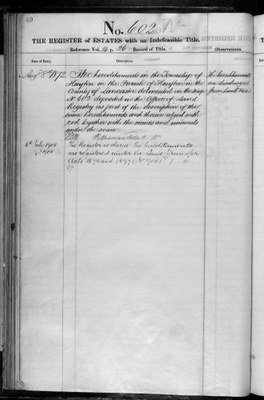 No. 602
THE REGISTER of ESTATES with an Indefeasible Title.
Reference Vol. p. 26 Record of Title.
Observations.
Date of Entry.
1872 The hereditaments in the Township of
Huyton in the Parish of Huyton in the
County of Lancaster delineated on the map
No 602 deposited in the Office of Land
Registry as part of the description of the
same hereditaments and thereon edged with
red together with the mines and minerals
under the same
The Register is closed. The hereditaments
are registered under the Land Transfer
Acts 1875 and 1897
The hereditaments
are discharged
from Land Tax